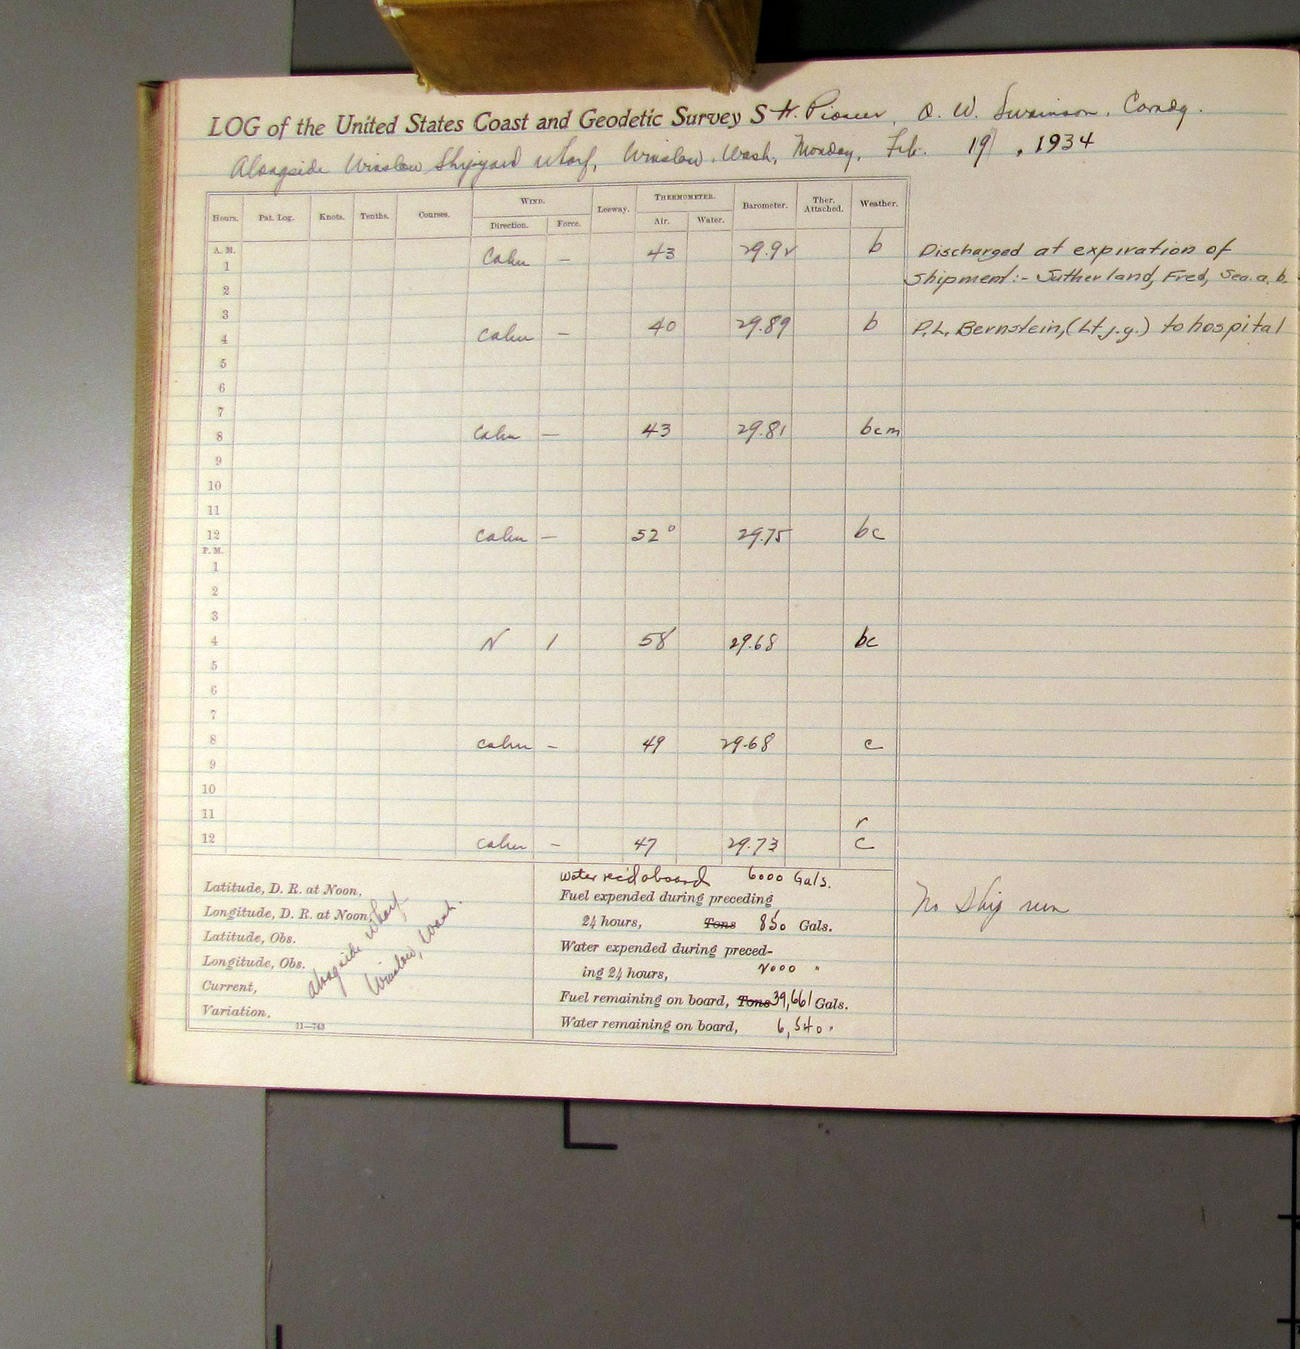 LOG of the United States Coast and Geodetic Survey Str. Pioneer, O. W. Swainson, Comdg.
Alongside Winslow Shipyard Wharf, Winslow, Wash, Monday, Feb. 19, 1934
Hours. Pat. Log. Knots. Tenths. Courses. WIND. Direction. Force. Leeway. THERMOMETER. Air. Water. Barometer. Ther. Attached. Weather.
A. M.
1 Calm – 43 29.92 b Discharged at expiration of
2 Shipment:- Sutherland, Fred, Sea. a. b.
3
4 calm – 40 29.89 b P.L. Bernstein, (Lt j.g.) to hospital
5
6
7
8 Calm — 43 29.81 bcm
9
10
11
12 calm — 52° 29.75 bc
P. M.
1
2
3
4 N 1 58 29.68 bc
5
6
7
8 calm – 49 29.68 c
9
10
11 r
12 calm – 47 29.73 c
Latitude, D. R. at Noon,
Longitude, D. R. at Noon,
Latitude, Obs.
Longitude, Obs.
Current,
Variation,
alongside wharf
Winslow, Wash.
11—743
Water rec'd aboard 6000 Gals.
Fuel expended during preceding
24 hours, Tons 850 Gals.
Water expended during preced-
ing 24 hours, 2000 "
Fuel remaining on board, Tons 39,661 Gals.
Water remaining on board, 6,540 "
No Ship run